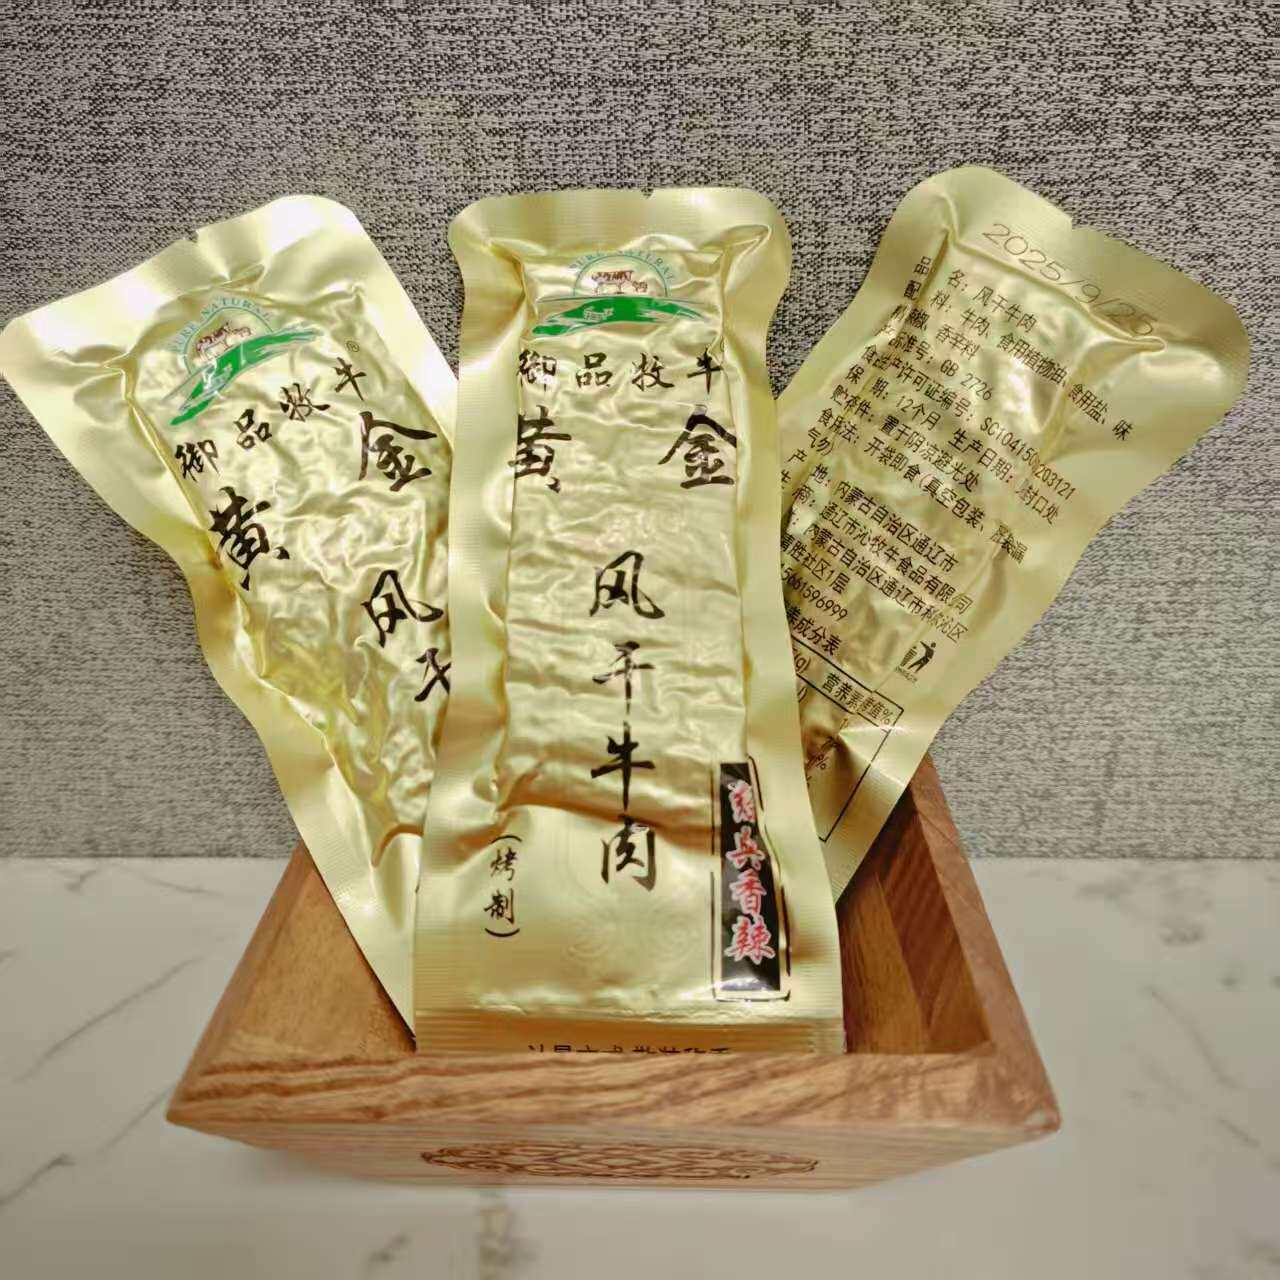 PURE NATURAL
御品牧牛®
黄金
风干
PURE NATURAL
御品牧牛
黄金
风干牛肉
(烤制)
香辣
2025/9/25
品 名：风干牛肉
配 料：牛肉、食用植物油、食用盐、味
香辛料
标准号：GB 2726
食品生产许可证编号：SC10415050203121
保 期：12个月 生产日期：封口处
贮存件：置于阴凉避光处
食用法：开袋即食(真空包装、
气勿
产 地：内蒙古自治区通辽市
商：通辽市沁牧牛食品有限公司
内蒙古自治区通辽市科尔沁区
胜社区1层
15661596999
养成分表
(g) 营养素参考值%